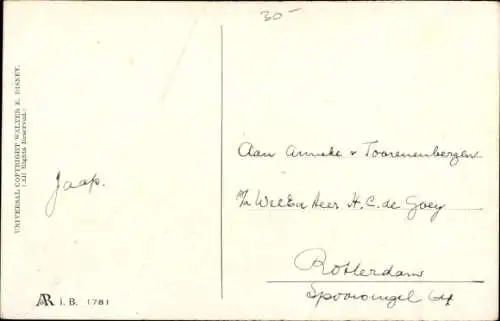 30-
UNIVERSAL COPYRIGHT WALTER E. DISNEY.
(All Rights Reserved.)
Jaap.
Aan Anneke v Toorenenbergen
p/a WelEd Heer H. C. de Goey
Rotterdam
Spoorsingel 64
AR i. B. 1781